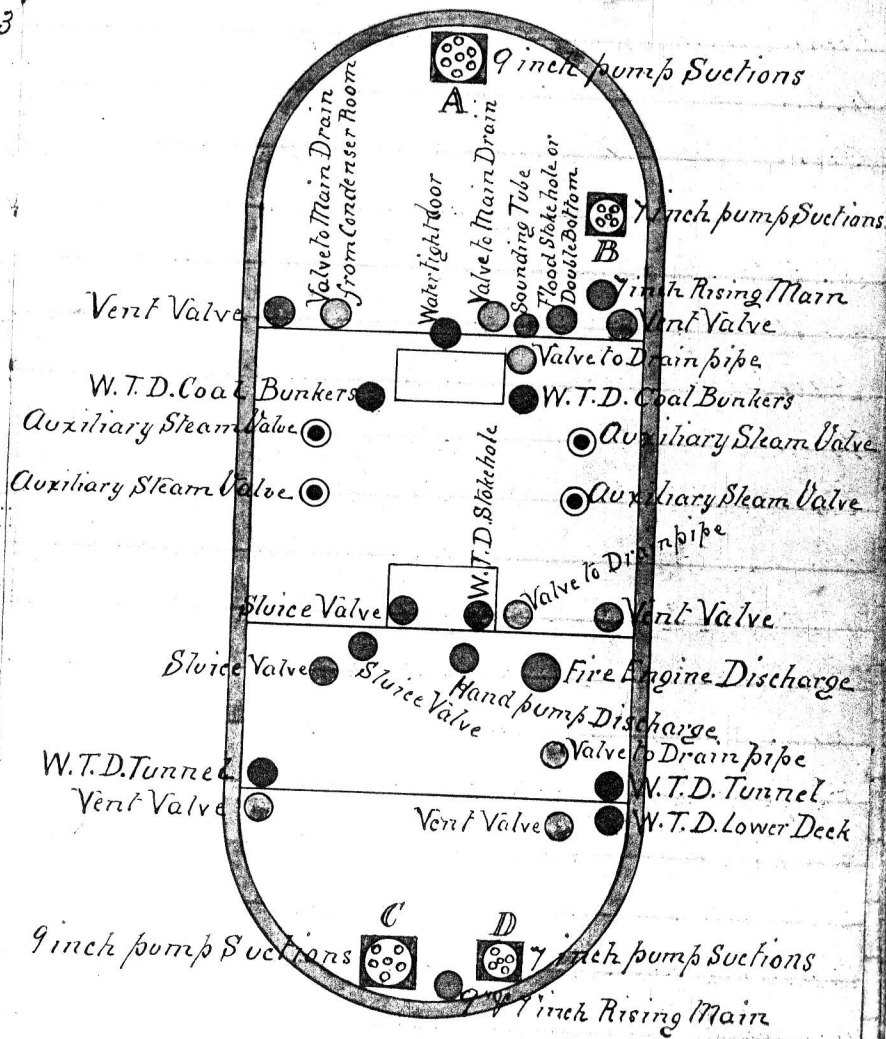 3
9 inch pump Suctions
A
Valve to Main Drain
from Condenser Room
Watertight door
Valve to Main Drain
Sounding Tube
Flood Stokehole or
Double Bottom
7 inch pump Suctions
B
7 inch Rising Main
Vent Valve
Vent Valve
Valve to Drain pipe
W.T.D. Coal Bunkers
W.T.D. Coal Bunkers
Auxiliary Steam Valve
Auxiliary Steam Valve
Auxiliary Steam Valve
Auxiliary Steam Valve
W.T.D. Stokehole
Valve to Drain pipe
Sluice Valve
Vent Valve
Sluice Valve
Sluice Valve
Hand pump Discharge
Fire Engine Discharge
Valve to Drain pipe
W.T.D. Tunnel
W.T.D. Tunnel
Vent Valve
Vent Valve
W.T.D. Lower Deck
C
D
9 inch pump Suctions
7 inch pump Suctions
9" & 7 inch Rising Main